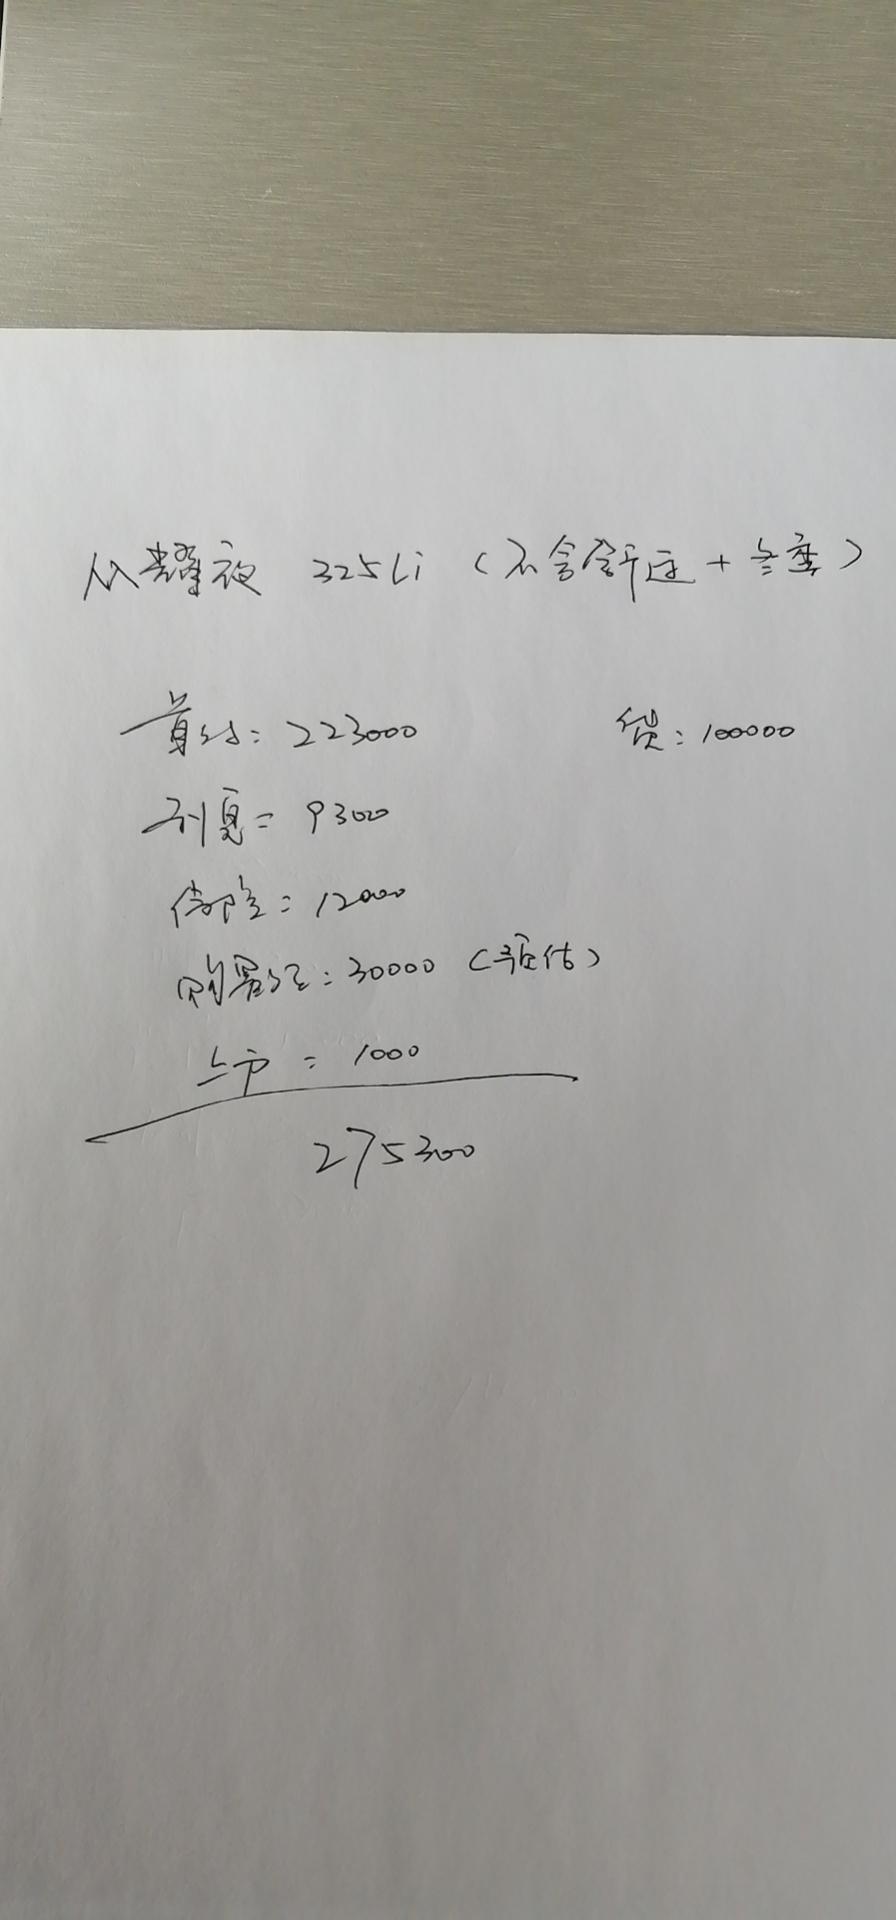 M耀夜 325Li（不含舒适+冬季）
首付：223000 贷：100000
利息：9300
保险：12000
购置税：30000（预估）
上户：1000
275300